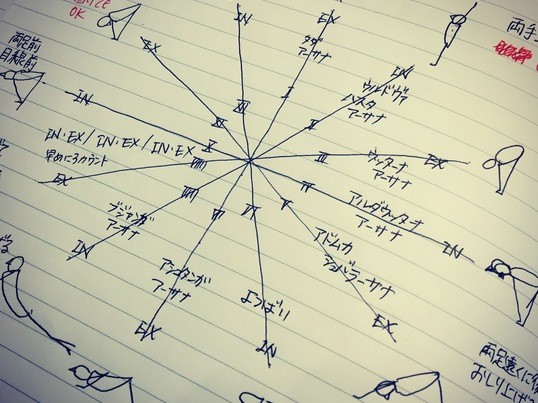 OK
両足前
目線前
EX
IN
X
IN
XII
EX
タダ
アーサナ
I
IN
ウルドヴァ
ハスタ
アーサナ
II
両手
EX
ウッターナ
アーサナ
III
IN
アルダウッターナ
アーサナ
IV
EX
アドムカ
シュバナーサナ
V
IN
よつばい
VI
EX
アシュタンガ
アーサナ
VII
IN
ブジャンガ
アーサナ
VIII
IN・EX/IN・EX/IN・EX
早めに3カウント
EX
両足遠くに
おしり上げ